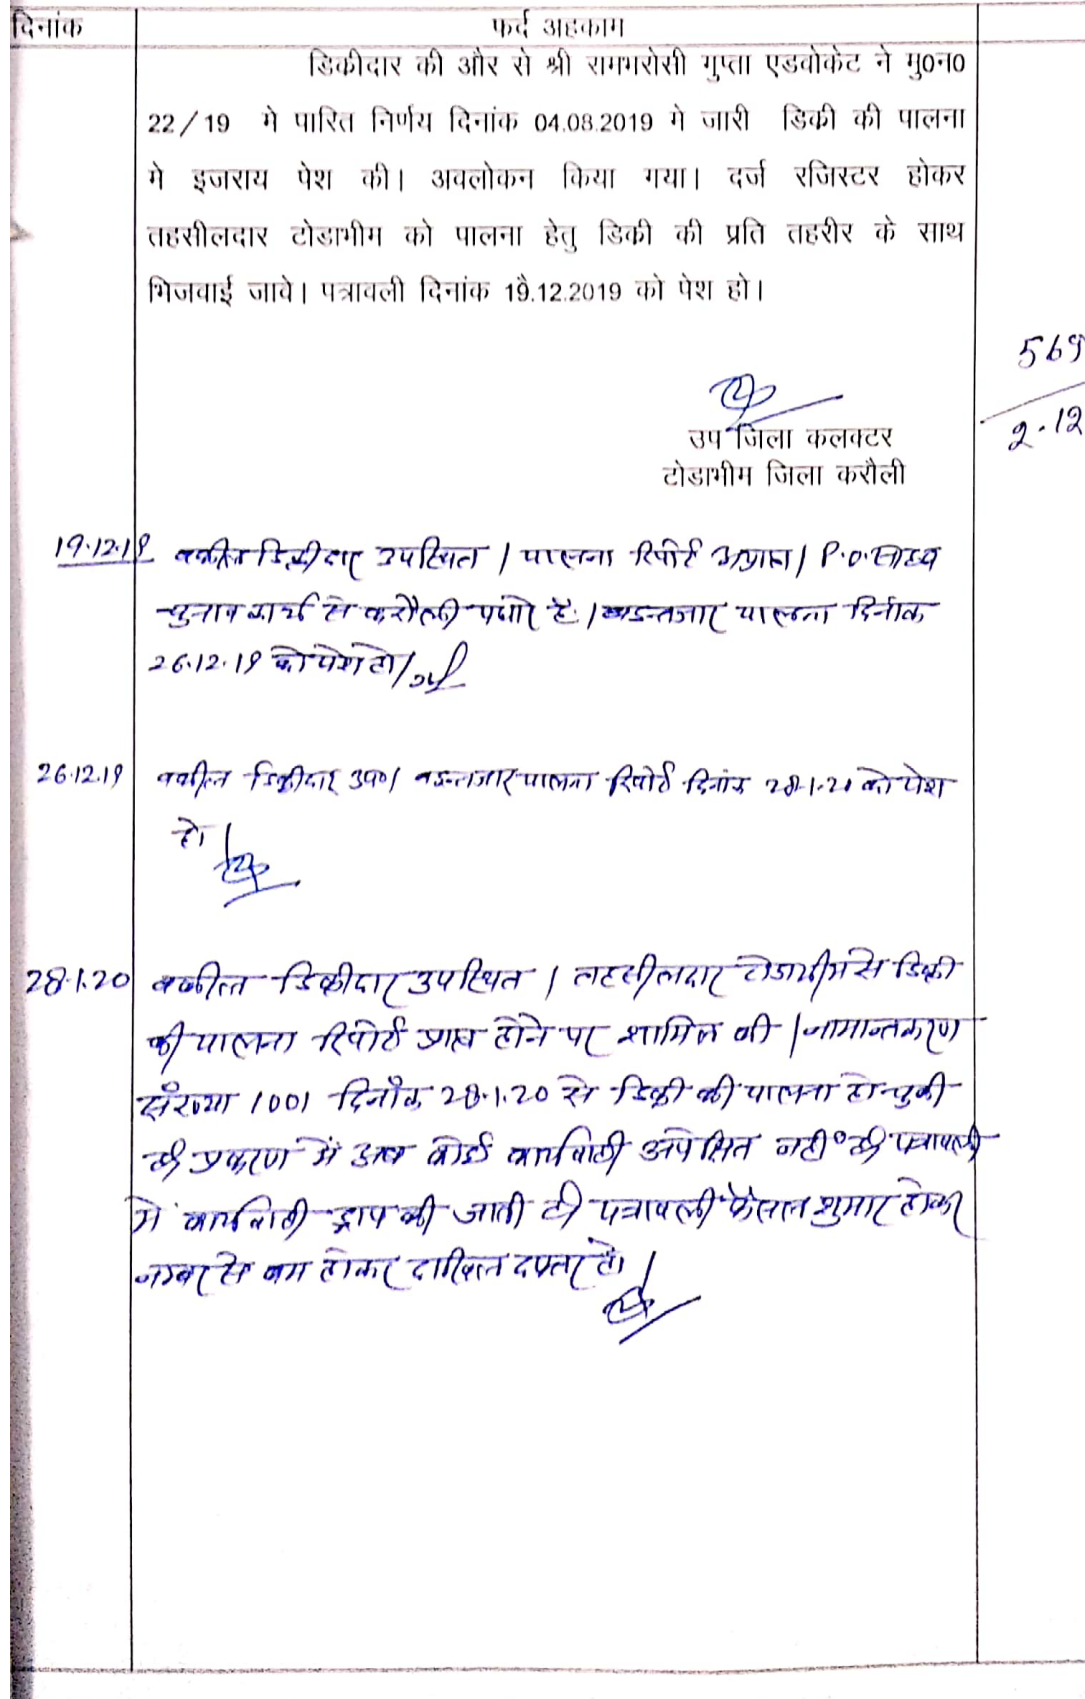 दिनांक
फर्द अहकाम
डिकीदार की और से श्री रामभरोसी गुप्ता एडवोकेट ने मु0न0
22/19 मे पारित निर्णय दिनांक 04.08.2019 मे जारी डिकी की पालना
मे इजराय पेश की। अवलोकन किया गया। दर्ज रजिस्टर होकर
तहसीलदार टोडाभीम को पालना हेतु डिकी की प्रति तहरीर के साथ
भिजवाई जावे। पत्रावली दिनांक 19.12.2019 को पेश हो।
569
2.12
उप जिला कलक्टर
टोडाभीम जिला करौली
19.12.19 वकील डिक्रीदार उपस्थित। पालना रिपोर्ट अप्राप्त। P.O. साहब
चुनाव कार्य से करौली पधारे है। इन्तजार पालना दिनांक
26.12.19 को पेश हो।
26.12.19 वकील डिक्रीदार उप०। बइन्तजार पालना रिपोर्ट दिनांक 28.1.20 को पेश
हो।
28.1.20 वकील डिक्रीदार उपस्थित। तहसीलदार टोडाभीम से डिक्री
की पालना रिपोर्ट प्राप्त होने पर शामिल की। नामान्तकरण
संख्या 1001 दिनाँक 28.1.20 से डिक्री की पालना हो चुकी
है प्रकरण में अब कोई कार्यवाही अपेक्षित नही है पत्रावली
मे कार्यवाही ड्राप की जाती है पत्रावली फैसल शुमार होकर
नम्बर से कम होकर दाखिल दफ्तर हो।